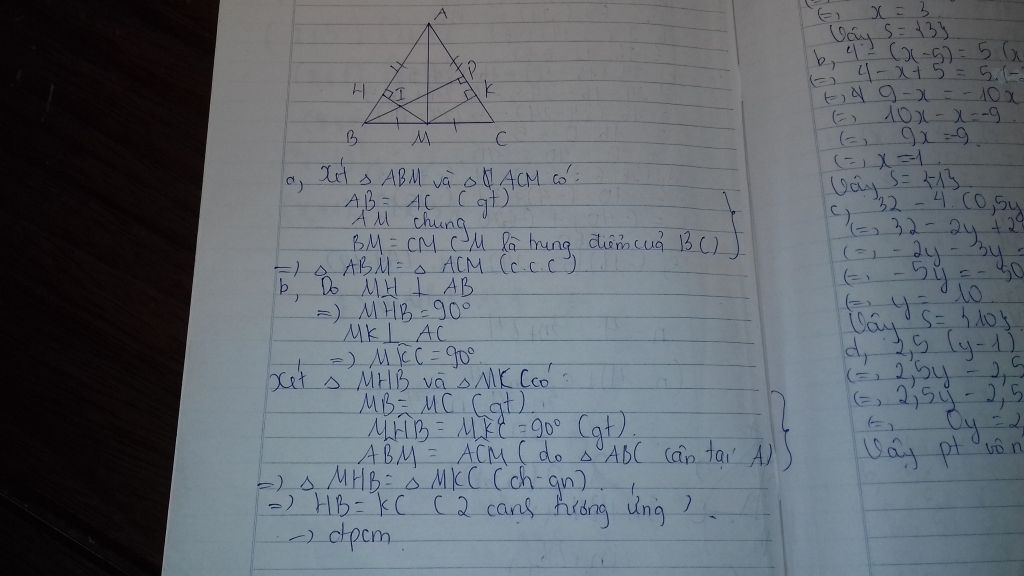 A
H
I
P
K
B
M
C
a, Xét △ ABM và △ ACM có:
AB = AC (gt)
AM chung
BM = CM (M là trung điểm của BC)
=) △ ABM = △ ACM (c.c.c)
b, Do MH ⊥ AB
=) MHB = 90°
MK ⊥ AC
=) MKC = 90°
Xét △ MHB và △ MKC có:
MB = MC (gt)
MHB = MKC = 90° (gt)
ABM = ACM (do △ ABC cân tại A)
=) △ MHB = △ MKC (ch-gn)
=) HB = KC (2 cạnh tương ứng)
=) đpcm
(=, x = 3
Vậy S = {3}
b, 4 - (x-5) = 5 (x
(=, 4 - x + 5 = 5.
(=, 9 - x = -10x
(=, 10x - x = -9
(=, 9x = 9
(=, x = 1
Vậy S = {1}
c, 32 - 4 (0,5y
(=, 32 - 2y + 2
(=, -2y - 3y =
(=, -5y = -50
(=, y = 10
Vậy S = {10}
d, 2,5 (y-1)
(=, 2,5y - 2,5
(=, 2,5y - 2,5
(=, 0y = 2,
Vậy pt vô n